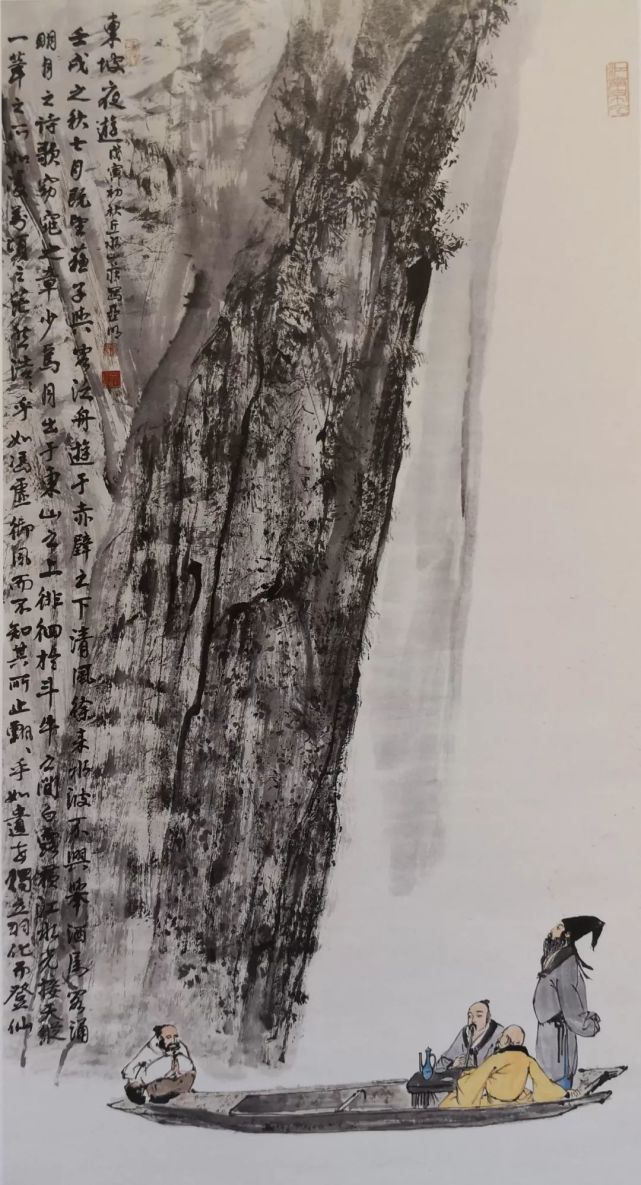 東坡夜遊 戊寅初秋近水山莊寫亞明
壬戌之秋七月既望蘇子與客泛舟遊于赤壁之下清風徐來水波不興舉酒屬客誦
明月之詩歌窈窕之章少焉月出于東山之上徘徊於斗牛之間白露橫江水光接天縱
一葦之所如凌萬頃之茫然浩、乎如馮虛御風而不知其所止飄、乎如遺世獨立羽化而登仙